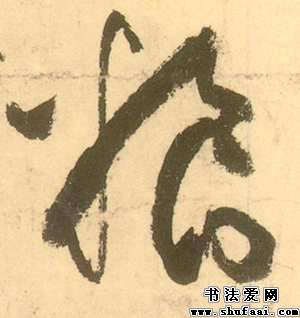 恨
书法爱网
www.shufaai.com